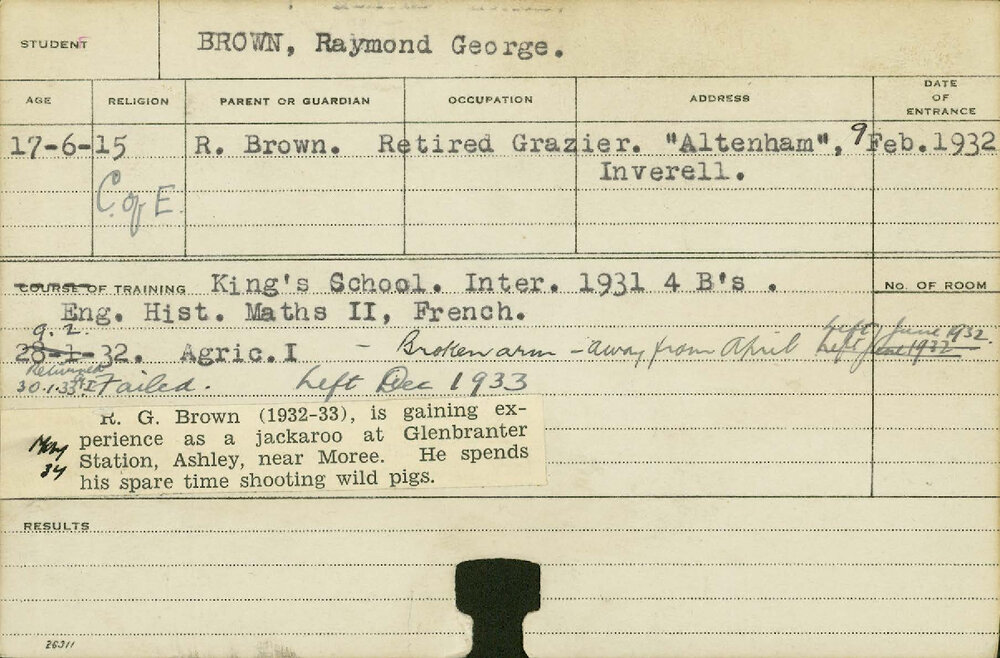 STUDENT BROWN, Raymond George.
AGE RELIGION PARENT OR GUARDIAN OCCUPATION ADDRESS DATE OF ENTRANCE
17-6-15 R. Brown. Retired Grazier. "Altenham", 9 Feb. 1932
C. of E. Inverell.
COURSE OF TRAINING King's School. Inter. 1931 4 B's . No. OF ROOM
Eng. Hist. Maths II, French.
9.2. Left June 1932.
28-1-32. Agric. I - Broken arm - away from April Left June 1932
Returned
30.1.33 Failed. Left Dec 1933
R. G. Brown (1932-33), is gaining ex-
May perience as a jackaroo at Glenbranter
34 Station, Ashley, near Moree. He spends
his spare time shooting wild pigs.
RESULTS
26311